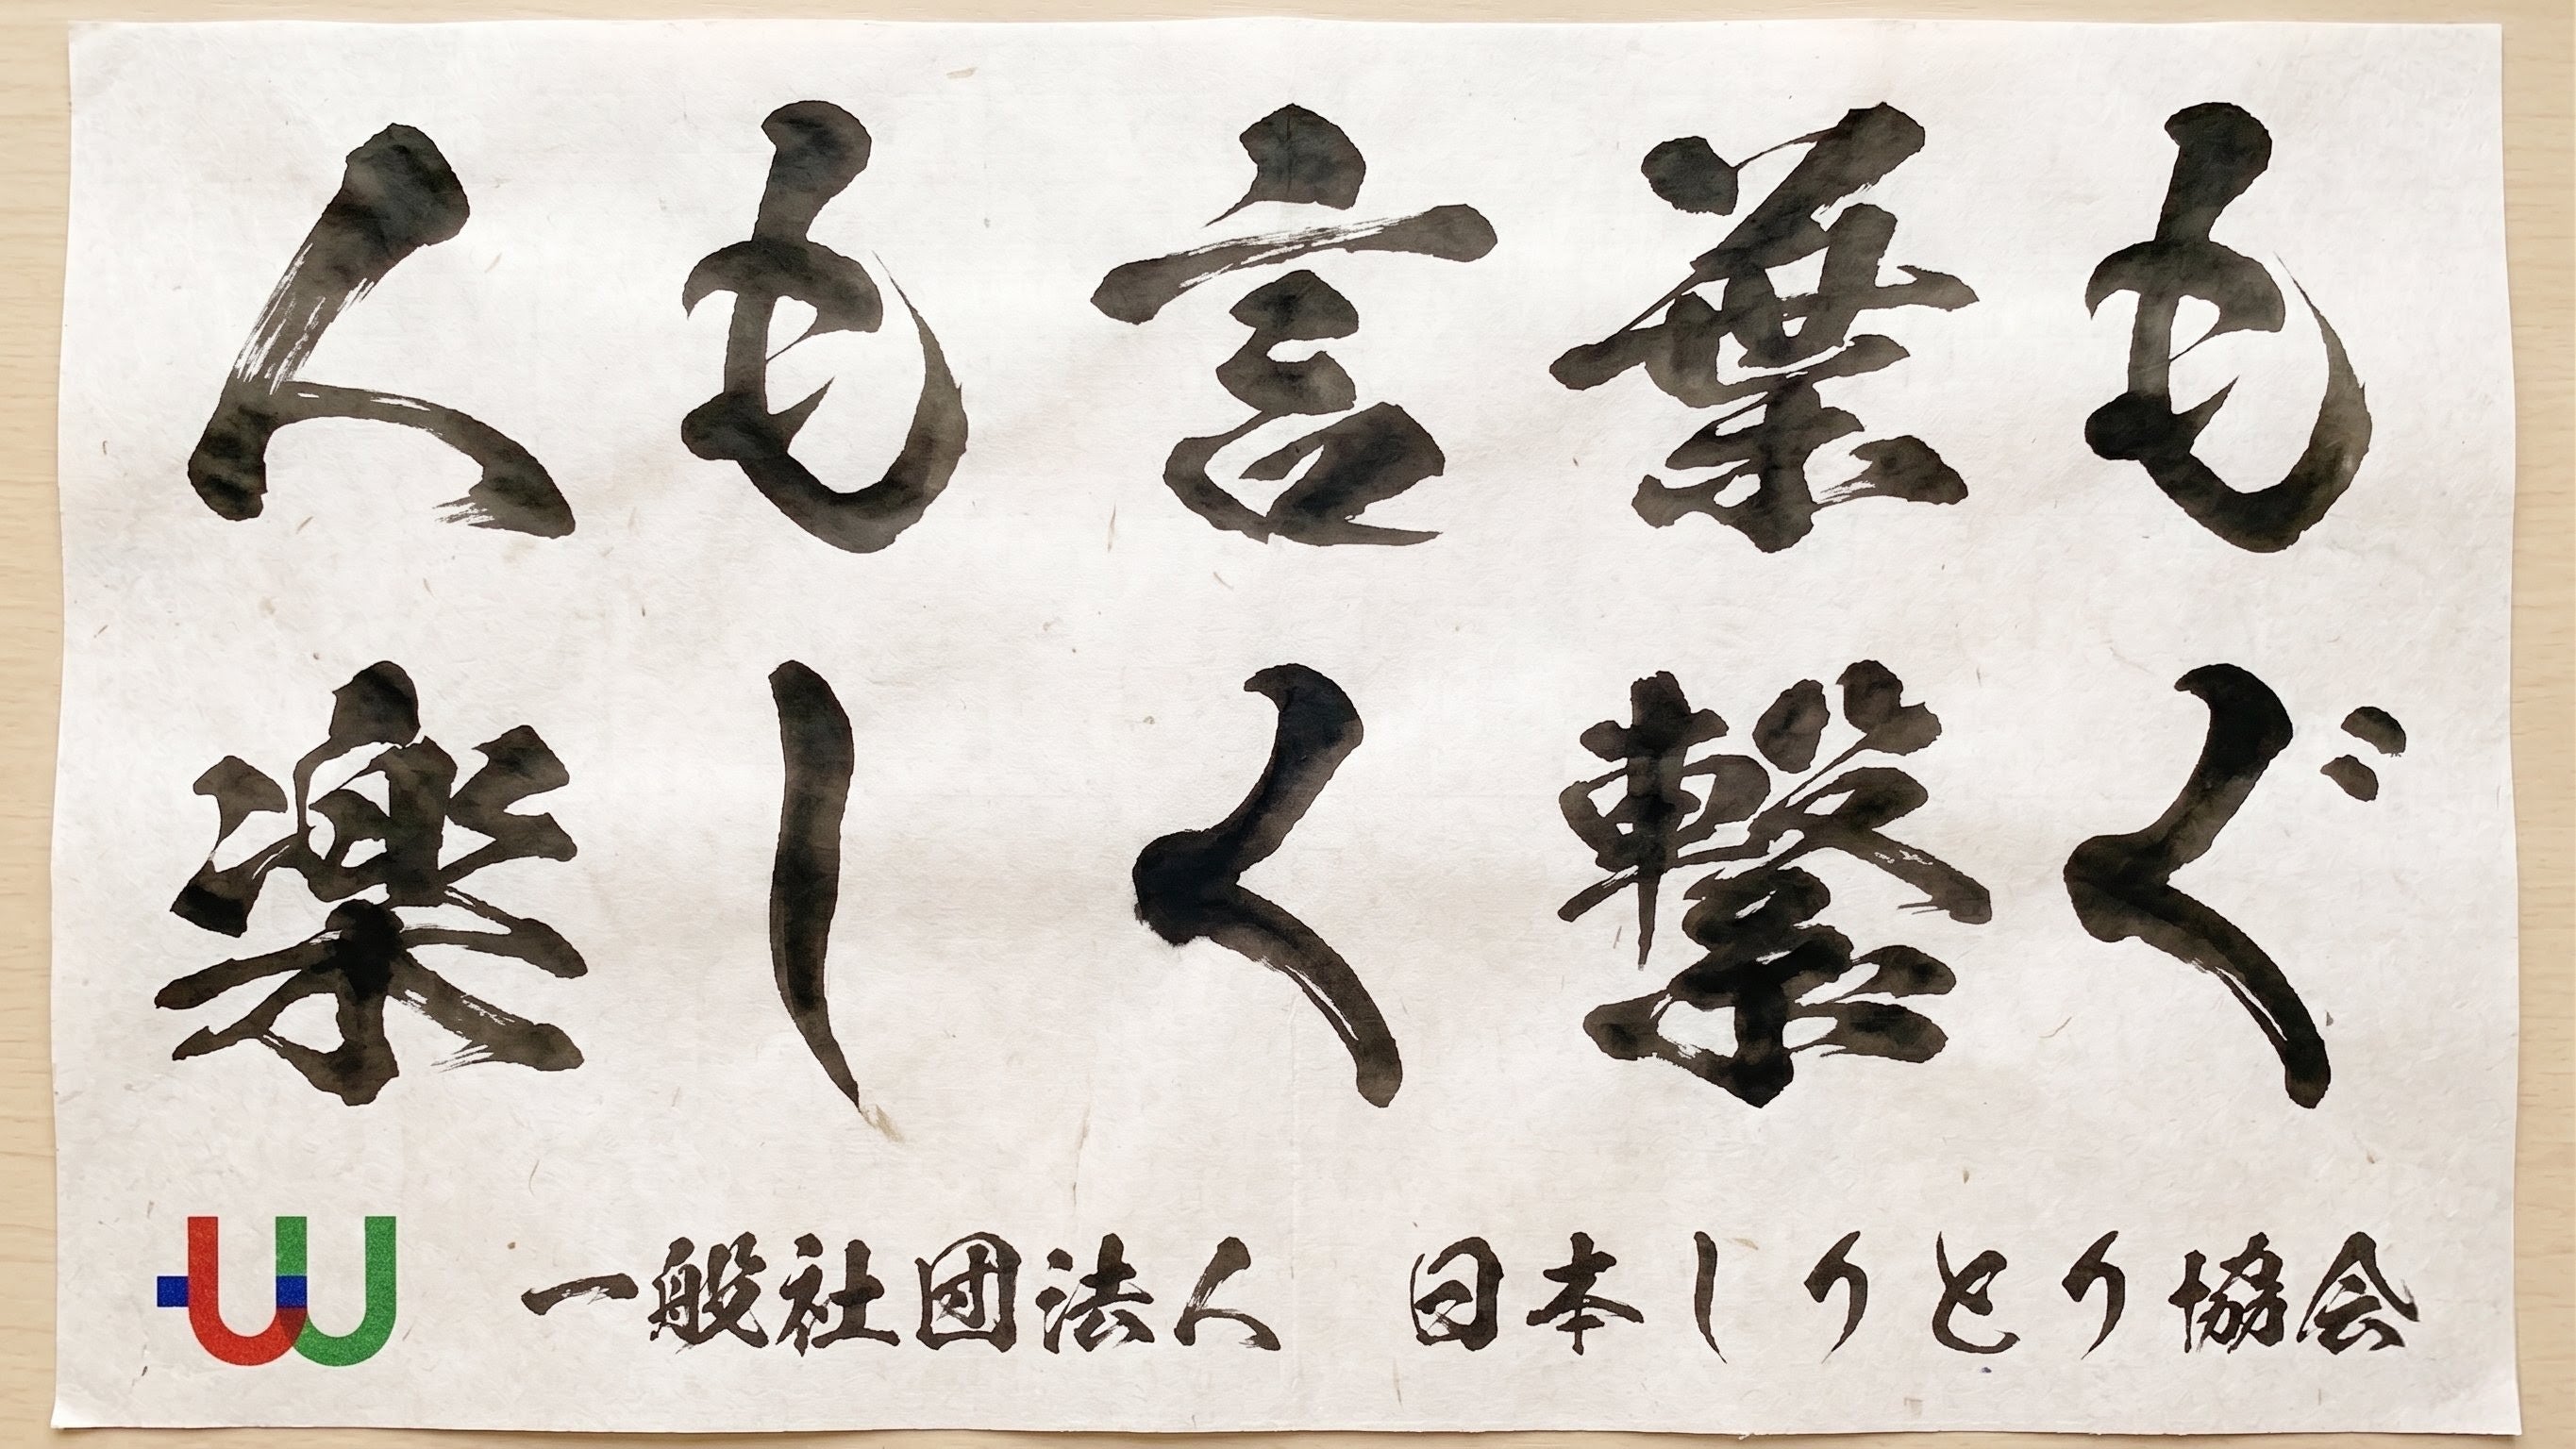 人も言葉も
楽しく繋ぐ
一般社団法人 日本しりとり協会